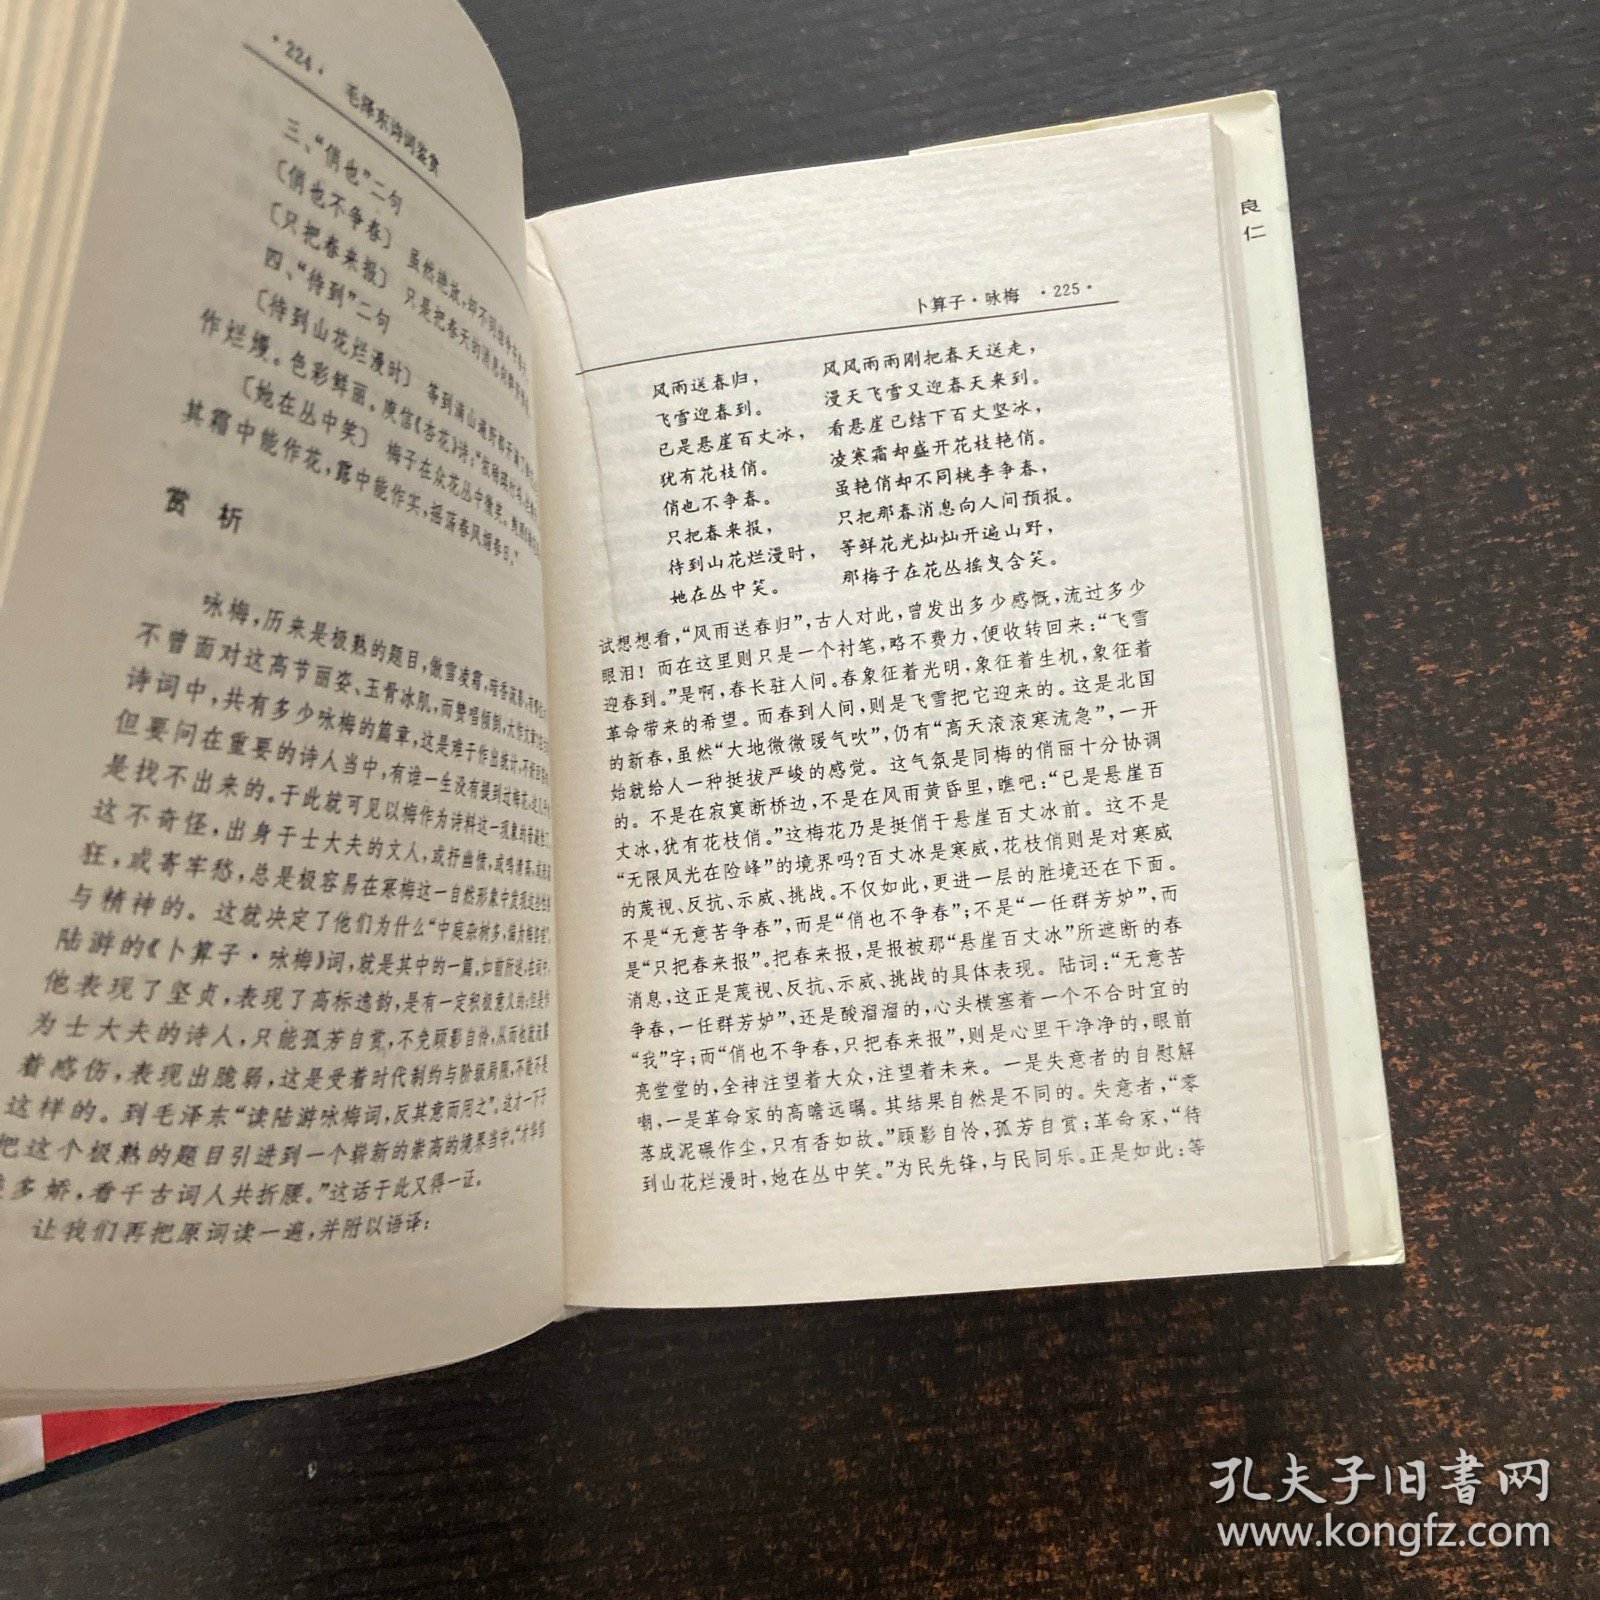 ·224· 毛泽东诗词鉴赏
三、“俏也”二句
〔俏也不争春〕 虽然艳放，却不同
〔只把春来报〕 只是把春天的消息向
四、“待到”二句
〔待到山花烂漫时〕 等到满山遍野都开满了
作烂熳。色彩鲜丽。庾信《杏花》诗：
〔她在丛中笑〕 梅子在众花丛中微笑。
其霜中能作花，露中能作实，摇荡春风媚春日。”
赏 析
咏梅，历来是极熟的题目，傲雪凌霜，暗香疏影，
不曾面对这高节丽姿、玉骨冰肌，而赞唱倾倒，大作文章
诗词中，共有多少咏梅的篇章，这是难于作出统计，
但要问在重要的诗人当中，有谁一生没有提到过梅花，
是找不出来的。于此就可见以梅作为诗料这一现象的普遍性了。
这不奇怪，出身于士大夫的文人，或抒幽愤，或鸣清高，
狂，或寄牢愁，总是极容易在寒梅这一自然形象中发现这些
与精神的。这就决定了他们为什么“中庭杂树多，偏为梅咨嗟”。
陆游的《卜算子·咏梅》词，就是其中的一篇。如前所述，在词中，
他表现了坚贞，表现了高标逸韵，是有一定积极意义的；但是作
为士大夫的诗人，只能孤芳自赏，不免顾影自怜，从而也就流露
着感伤，表现出脆弱，这是受着时代制约与阶级局限，不能不是
这样的。到毛泽东“读陆游咏梅词，反其意而用之”。这才一下子
把这个极熟的题目引进到一个崭新的崇高的境界当中。“才华信
多娇，看千古词人共折腰。”这话于此又得一证。
让我们再把原词读一遍，并附以语译：
卜算子·咏梅 ·225·
风雨送春归， 风风雨雨刚把春天送走，
飞雪迎春到。 漫天飞雪又迎春天来到。
已是悬崖百丈冰， 看悬崖已结下百丈坚冰，
犹有花枝俏。 凌寒霜却盛开花枝艳俏。
俏也不争春。 虽艳俏却不同桃李争春，
只把春来报， 只把那春消息向人间预报。
待到山花烂漫时， 等鲜花光灿灿开遍山野，
她在丛中笑。 那梅子在花丛摇曳含笑。
试想想看，“风雨送春归”，古人对此，曾发出多少感慨，流过多少
眼泪！而在这里则只是一个衬笔，略不费力，便收转回来：“飞雪
迎春到。”是啊，春长驻人间。春象征着光明，象征着生机，象征着
革命带来的希望。而春到人间，则是飞雪把它迎来的。这是北国
的新春，虽然“大地微微暖气吹”，仍有“高天滚滚寒流急”，一开
始就给人一种挺拔严峻的感觉。这气氛是同梅的俏丽十分协调
的。不是在寂寞断桥边，不是在风雨黄昏里，瞧吧：“已是悬崖百
丈冰，犹有花枝俏。”这梅花乃是挺俏于悬崖百丈冰前。这不是
“无限风光在险峰”的境界吗？百丈冰是寒威，花枝俏则是对寒威
的蔑视、反抗、示威、挑战。不仅如此，更进一层的胜境还在下面。
不是“无意苦争春”，而是“俏也不争春”；不是“一任群芳妒”，而
是“只把春来报”。把春来报，是报被那“悬崖百丈冰”所遮断的春
消息，这正是蔑视、反抗、示威、挑战的具体表现。陆词：“无意苦
争春，一任群芳妒”，还是酸溜溜的，心头横塞着一个不合时宜的
“我”字；而“俏也不争春，只把春来报”，则是心里干净净的，眼前
亮堂堂的，全神注望着大众，注望着未来。一是失意者的自慰解
嘲，一是革命家的高瞻远瞩。其结果自然是不同的。失意者，“零
落成泥碾作尘，只有香如故。”顾影自怜，孤芳自赏；革命家，“待
到山花烂漫时，她在丛中笑。”为民先锋，与民同乐。正是如此：等
良仁
孔夫子旧书网
www.kongfz.com